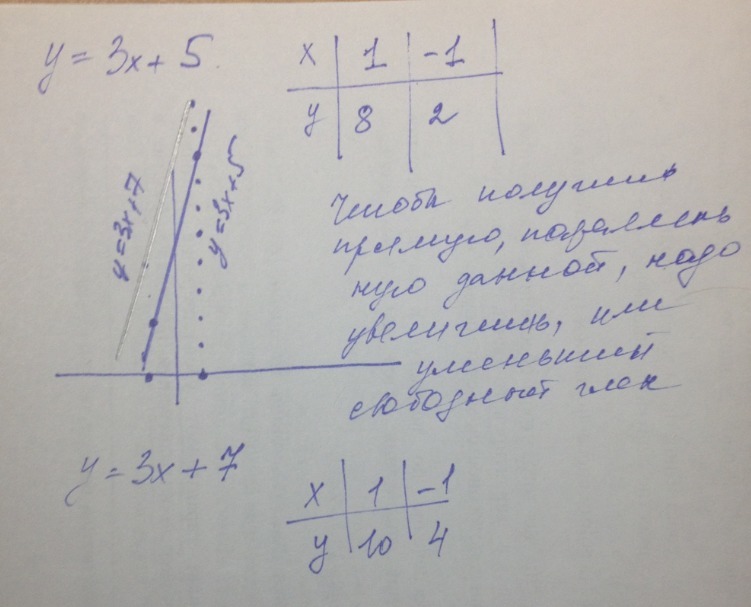 y = 3x + 5
x | 1 | -1
y | 8 | 2
y = 3x + 7
y = 3x + 5
Чтобы получить
прямую, параллель
ную данной, надо
увеличить, или
уменьшит
свободный член
y = 3x + 7
x | 1 | -1
y | 10 | 4